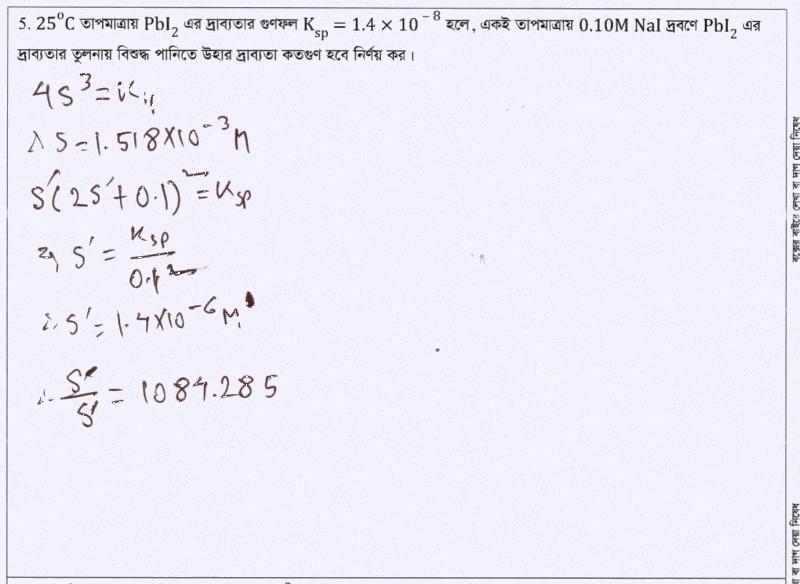 5. 25⁰C তাপমাত্রায় PbI₂ এর দ্রাব্যতার গুণফল K_sp = 1.4 × 10⁻⁸ হলে, একই তাপমাত্রায় 0.10M NaI দ্রবণে PbI₂ এর
দ্রাব্যতার তুলনায় বিশুদ্ধ পানিতে উহার দ্রাব্যতা কতগুণ হবে নির্ণয় কর।
4S³ = K
S = 1.518×10⁻³ M
S′(2S′ + 0.1)² = K_sp
S′ = K_sp / 0.1²
∴ S′ = 1.4×10⁻⁶ M
∴ S / S′ = 1084.285
বক্সের বাইরে লেখা বা দাগ দেয়া নিষেধ
বা দাগ দেয়া নিষেধ